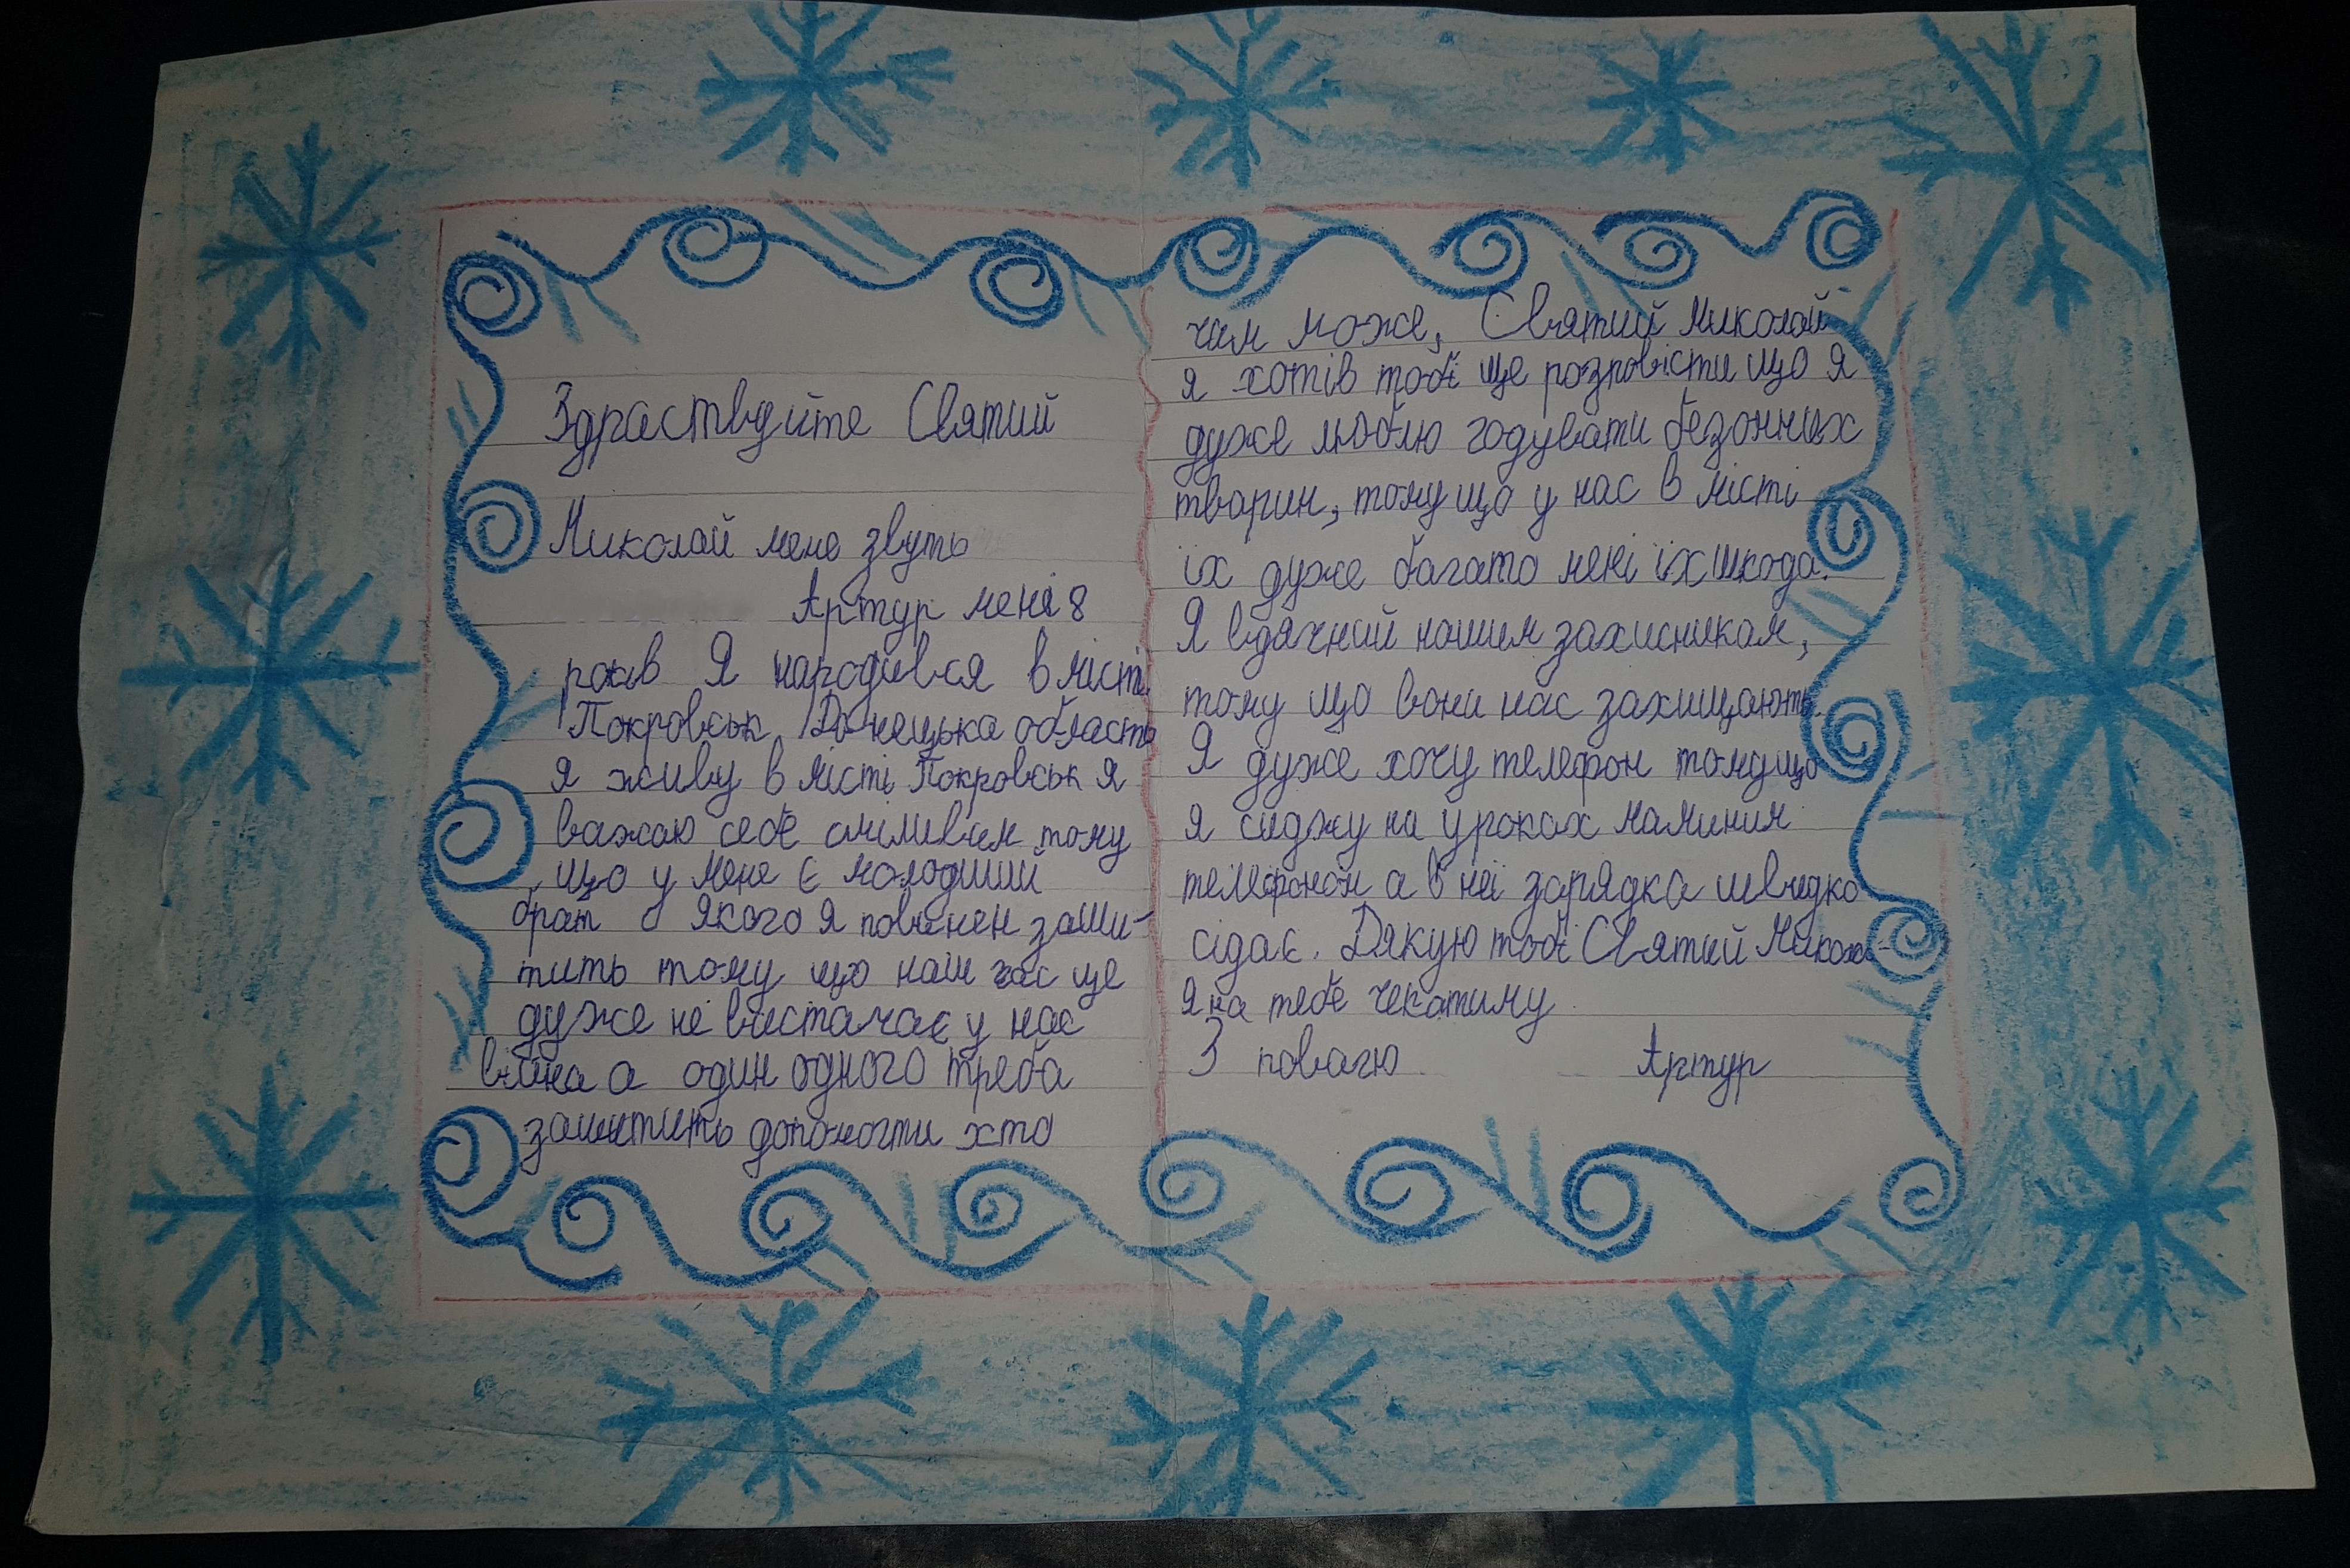 Здраствуйте Святий
Миколай мене звуть
Артур мені 8
років Я народився в місті
Покровськ Донецька область
я живу в місті Покровськ я
важаю себе сміливим тому
що у мене є молодший
брат якого я повинен защи-
тить тому що наш час це
дуже не вистачає у нас
війна а один одного треба
защитить допомогти хто
чим може, Святий Миколай
я хотів тобі ще розповісти що я
дуже люблю годувати безонних
тварин, тому що у нас в місті
їх дуже багато мені їх шкода.
Я вдячний нашим захисникам,
тому що вони нас захищають.
Я дуже хочу телефон тому що
я сиджу на уроках маминим
телефоном а в неї зарядка швидко
сідає. Дякую тобі Святий Микола-
я на тебе чекатиму
З повагю Артур